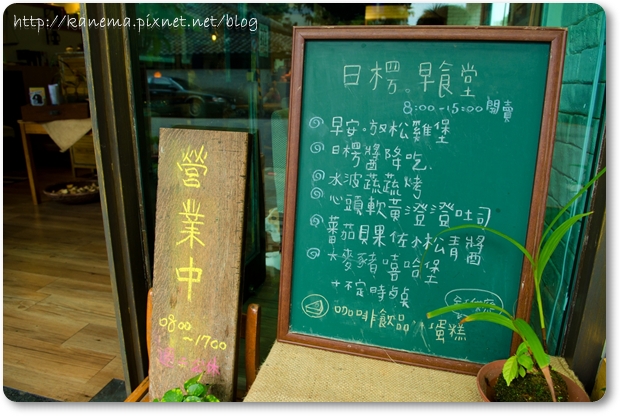 http://kanema.pixnet.net/blog
營業中
0800~1700
日楞。早食堂
8:00-15:00 開賣
早安。放松雞堡
日楞醬降吃.
水波蔬蔬烤
心頭軟黃澄澄吐司
蕃茄貝果佐松青醬
大麥豬嘻哈堡
+不定時桌
咖啡飲品、蛋糕